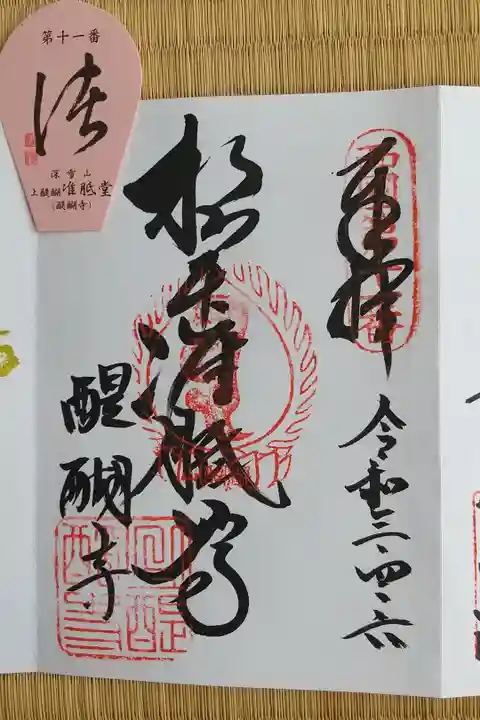 第十一番
深雪山
上醍醐准胝堂
(醍醐寺)
奉拝
令和三、四、六
根本准胝尊
醍醐寺